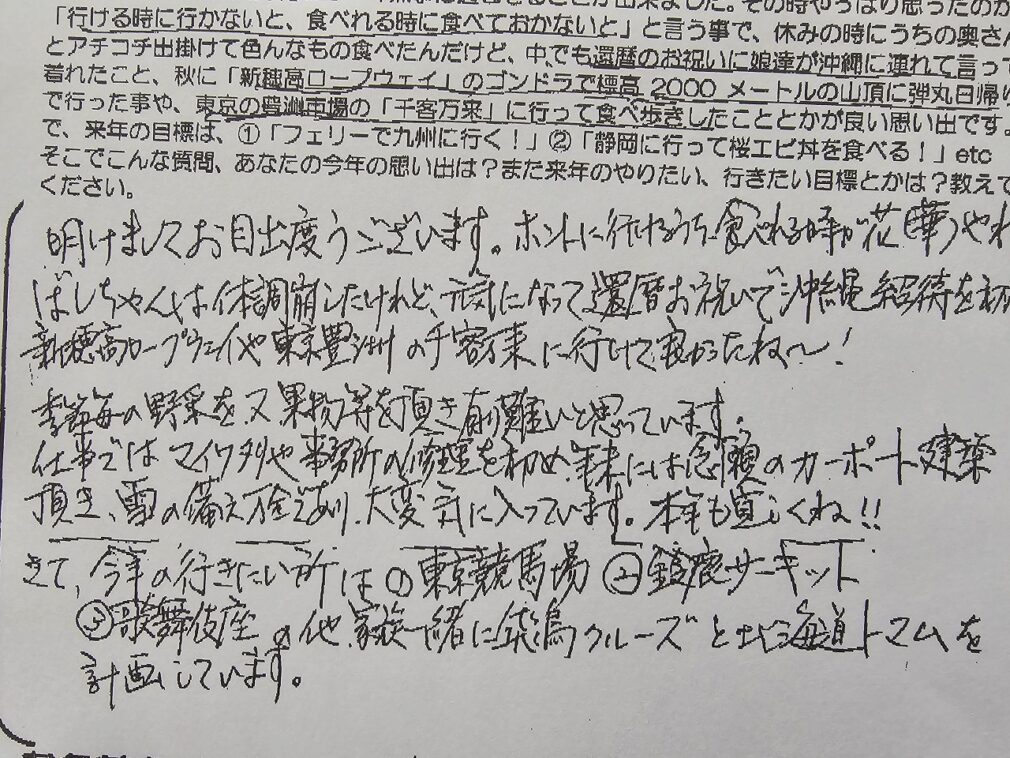 出来ました。その時やっぱり思ったのか
「行ける時に行かないと、食べれる時に食べておかないと」と言う事で、休みの時にうちの奥さん
とアチコチ出掛けて色んなもの食べたんだけど、中でも還暦のお祝いに娘達が沖縄に連れて言って
着れたこと、秋に「新穂高ロープウェイ」のゴンドラで標高 2000 メートルの山頂に弾丸日帰り
で行った事や、東京の豊洲市場の「千客万来」に行って食べ歩きしたこととかが良い思い出です。
で、来年の目標は、①「フェリーで九州に行く!」②「静岡に行って桜エビ丼を食べる!」etc
そこでこんな質問、あなたの今年の思い出は?また来年のやりたい、行きたい目標とかは?教えて
ください。
明けましてお目出度うございます。ホントに行けるうち、食べれる時が花(華)やね
ばしちゃんは体調崩したけれど、元気になって還暦お祝いで沖縄招待を初
新穂高ロープウェイや東京豊洲の千客万来に行けて良かったね〜!
季節毎の野菜を、又果物等を頂き有難いと思っています。
仕事ではマイワタルや事務所の修理を初め、年末には念願のカーポート建築
頂き、雪の備え万全であり、大変気に入っています。本年も宜しくね!!
さて、今年の行きたい所は①東京競馬場 ②鈴鹿サーキット
③歌舞伎座の他、家族一緒に飛鳥クルーズと北海道トマムを
計画しています。